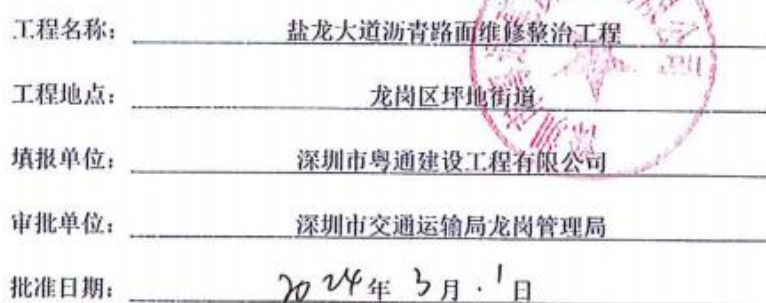 工程名称： 盐龙大道沥青路面维修整治工程
工程地点： 龙岗区坪地街道
填报单位： 深圳市粤通建设工程有限公司
审批单位： 深圳市交通运输局龙岗管理局
批准日期： 2024年3月·1日